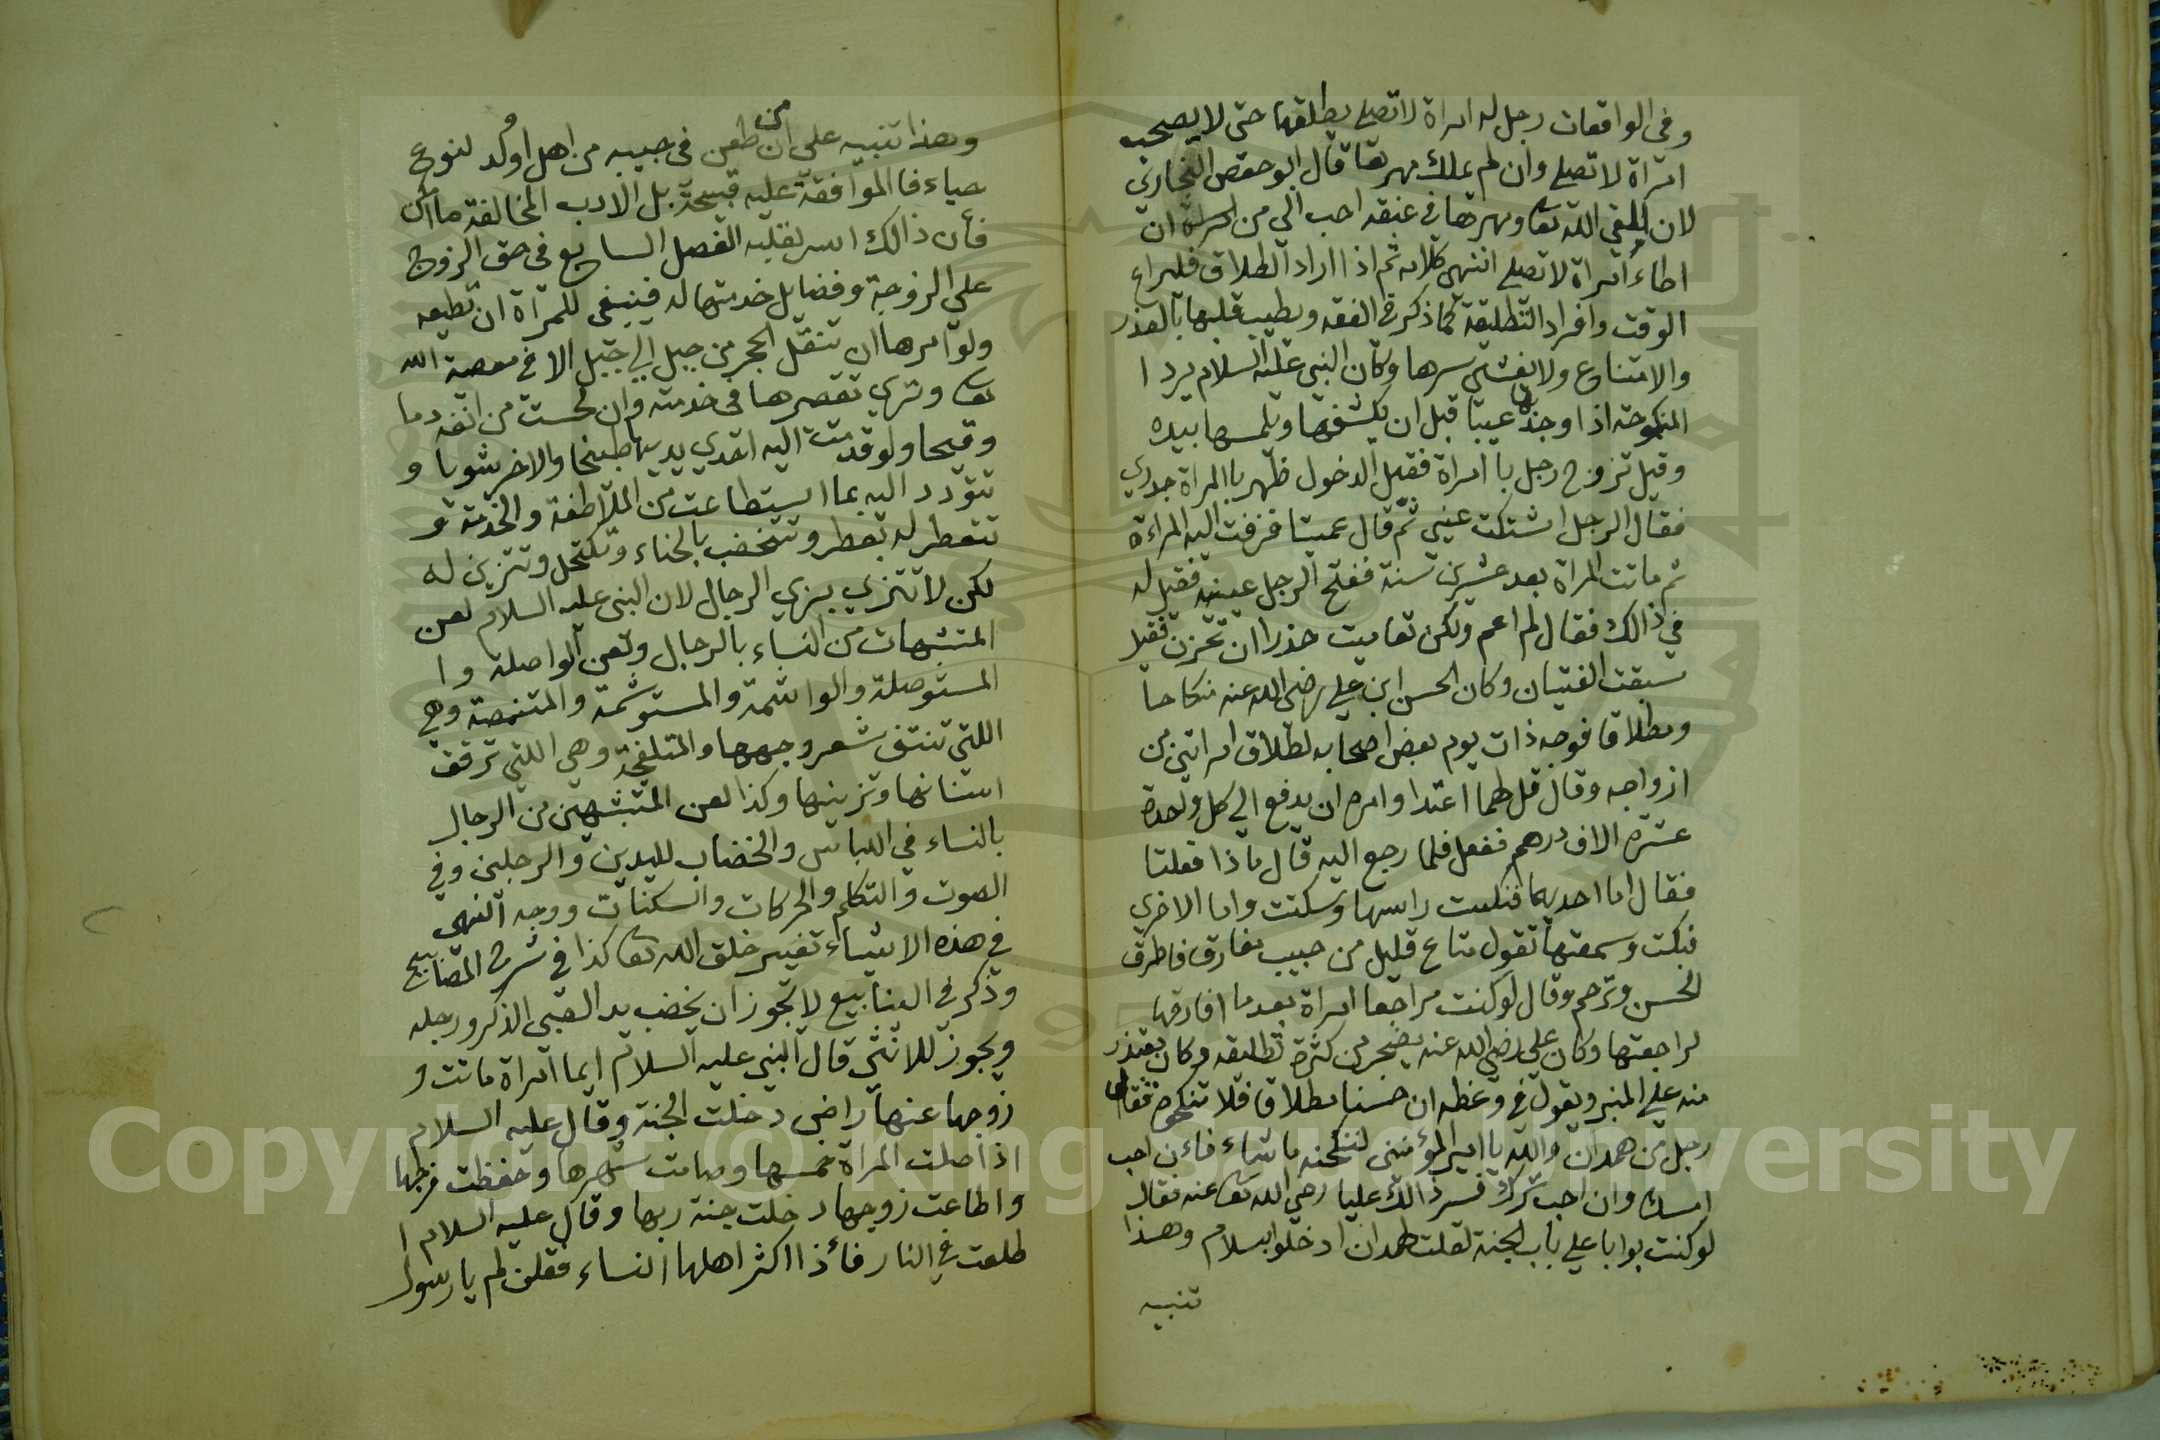 وفى الواقعات رجل له امراة لا تصلى يطلقها حتى لا يصحب
امراة لا تصلى وان لم يملك مهرها قال ابو حفص البخارى
لان القى الله تعا ومهرها فى عنقه احب الى من امراة ان
اطاء امراة لا تصلى انتهى كلامه ثم اذا اراد الطلاق فليراع
الوقت وافراد التطليقة كما ذكر فى الفقه ويطيب قلبها بالعذر
والامتناع ولا يفشى سرها وكان النبى عليه السلام يرد ا
المنكوحة اذا وجد بها عيبا قبل ان يكشفها ويلمسها بيده
وقيل تزوج رجل با امراة فقبل الدخول ظهر باالمراة جدري
فقال الرجل اشتكت عينى ثم قال عميتا فزفت اليه المراءة
ثم ماتت المراة بعد عشرين سنة ففتح الرجل عينيه فقيل له
فى ذالك فقال لم اعم ولكن تعاميت حذرا ان تحزن فقيل
سبقت الفتيان وكان الحسن ابن على رضى الله عنه نكاحا
ومطلاقا فوجه ذات يوم بعض اصحابه لطلاق امراتين من
ازواجه وقال قل لهما اعتدا وامره ان يدفع الى كل واحدة
عشرة الاف درهم ففعل فلما رجع اليه قال ماذا فعلتا
فقال اما احديهما فنكست راسها وسكتت واما الاخرى
فبكت وسمعتها تقول متاع قليل من حبيب مفارق فاطرق
الحسن وترحم وقال لو كنت مراجعا امراة بعد ما افارقها
لراجعتها وكان على رضى الله عنه يضجر من كثرة تطليقه وكان يعتذر
منه على المنبر ويقول فى وعظه ان حسنا مطلاقا فلا تنكحوه فقال
رجل من همدان والله يا امير المؤمنين لننكحنه ما شاء فاءن احب
امسك وان احب ترك فسر ذالك عليا رضى الله تعا عنه فقال
لو كنت بوابا على باب الجنة لقلت لهمدان ادخلوا بسلام وهذا
تنبيه
وهذا تنبيه على ان من طعن فى حبيبه من اهل او ولد لنوع
حياء فا الموافقة عليه قبيحة بل الادب المخالفة ما امكن
فأن ذالك اسر لقلبه الفصل السابع فى حق الزوج
على الزوجة وفضايل خدمتها له فينبغى للمراة ان تطيعه
ولو امرها ان تنقل الحجر من جبل الى جبل الا فى معصية الله
تعا وترى تقصيرها فى خدمته وان لحست من انفه دما
وقيحا ولو قدمت اليه احدى يديها طبيخا والاخر شويا و
تتودد اليه بما استطاعت من الملاطفة والخدمة و
تتعطر له بعطر وتتخضب بالحناء وتكتحل وتتزين له
لكن لا تتزي بزي الرجال لان النبى عليه السلام لعن
المتشبهات من النساء بالرجال ولعن الواصلة وا
المستوصلة والواشمة والمستوشمة والمتنمصة وهى
اللتى تنتف شعر وجهها والمتفلجة وهى اللتى ترقق
اسنانها وتزينها وكذا لعن المتشبهين من الرجال
بالنساء فى اللباس والخضاب لليدين والرجلين وفى
الصوت والتكلم والحركات والسكنات ووجه النهى
فى هذه الاشياء تغيير خلق الله تعا كذا فى شرح المصابيح
وذكر فى الينابيع لا يجوز ان يخضب يد الصبى الذكر ورجله
ويجوز للانثى قال النبى عليه السلام ايما امراة ماتت و
زوجها عنها راض دخلت الجنة وقال عليه السلام
اذا صلت المراة خمسها وصامت شهرها وحفظت فرجها
واطاعت زوجها دخلت جنة ربها وقال عليه السلام ا
طلعت فى النار فأذا اكثر اهلها النساء فقلن لم يا رسول